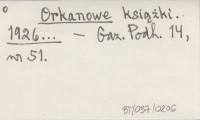 Orkanowe książki.
1926... – Gaz. Podh. 14,
nr 51.
BT/037/0206